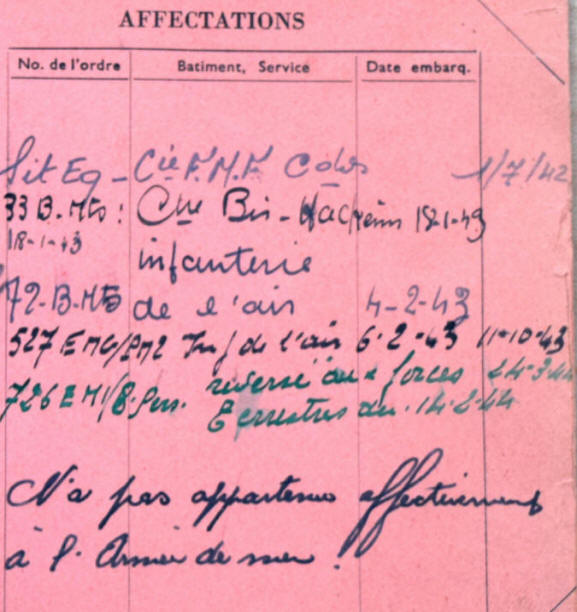 AFFECTATIONS
No. de l'ordre Batiment, Service Date embarq.
Sit Eq - Cie F.M.F 1/7/42
33 B. Mts: Cne Bir-Hacheim 18-1-43
18-1-43
infanterie
72-B-Mts de l'air 4-2-43
527 EMG/PM2 Inf de l'air 6-2-43 11-10-43
726 EM1/8. Pers. reversé aux forces
terrestres du 14-2-44
N'a pas appartenu effectivement
à l'Armée de mer!